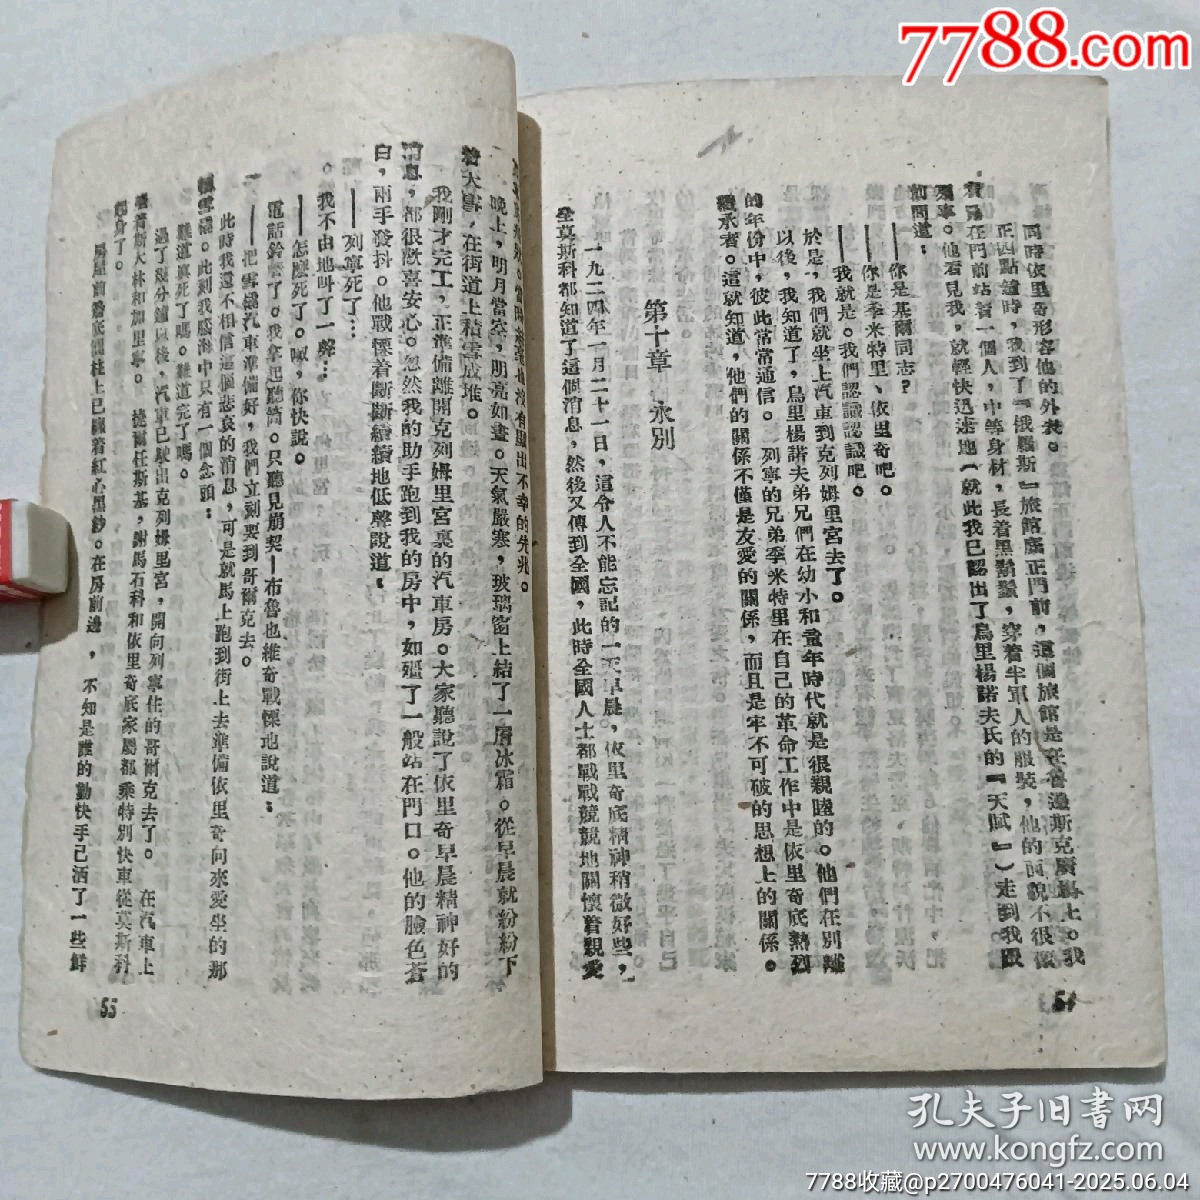 7788.com
同時依里奇形容他的外表。
正四點鐘時，我到了『俄羅斯』旅館底正門前，這個旅館是在魯邊斯克廣場上。我
看見在門前站着一個人，中等身材，長着黑鬍鬚，穿着半軍人的服裝，他的面貌不很像
列寧。他看見我，就輕快迅速地（就此我已認出了烏里楊諾夫氏的『天賦』）走到我跟
前問道：
——你是基爾同志？
——你是季米特里、依里奇吧。
——我就是。我們認識認識吧。
於是，我們就坐上汽車到克列姆里宮去了。
以後，我知道了，烏里楊諾夫弟兄們在幼小和童年時代就是很親睦的。他們在別離
的年份中，彼此常常通信。列寧的兄弟季米特里在自己的革命工作中是依里奇底熱烈
繼承者。這就知道，他們的關係不僅是友愛的關係，而且是牢不可破的思想上的關係。
第十章 永別
一九二四年一月二十一日，這令人不能忘記的一天早晨，依里奇底精神稍微好些，
全莫斯科都知道了這個消息，然後又傳到全國，此時全國人士都戰戰兢兢地關懷着親愛
54
沒有顯出不幸的先兆。
晚上，明月當空，明亮如晝。天氣嚴寒，玻璃窗上結了一層冰霜。從早晨就紛紛下
着大雪，在街道上積雪成堆。
我剛才完工，正準備離開克列姆里宮裏的汽車房。大家聽說了依里奇早晨精神好的
消息，都很歡喜安心。忽然我的助手跑到我的房中，如殭了一般站在門口。他的臉色蒼
白，兩手發抖。他戰慄着斷斷續續地低聲說道：
——列寧死了…
。我不由地叫了一聲…
——怎麼死了。啾，你快說。
電話鈴響了。我拿起聽筒。只聽見崩契—布魯也維奇戰慄地說道：
——把雪橇汽車準備好，我們立刻要到哥爾克去。
此時我還不相信這個悲哀的消息，可是就馬上跑到街上去準備依里奇向來愛坐的那
輛雪橇。此刻我腦海中只有一個念頭：
難道真死了嗎。難道完了嗎。
過了幾分鐘以後，汽車已駛出克列姆里宮，開向列寧住的哥爾克去了。在汽車上
坐着斯大林和加里寧。捷爾任斯基，謝馬石科和依里奇底家屬都乘特別快車從莫斯科
動身了。
房屋前簷底圓柱上已飄着紅心黑紗。在房前邊，不知是誰的勤快手已洒了一些鮮
55
孔夫子旧書网
www.kongfz.com
7788收藏@p2700476041-2025.06.04